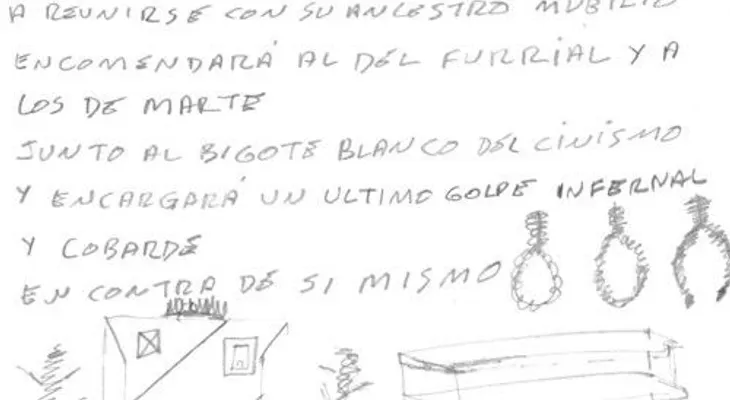 A REUNIRSE CON SU ANCESTRO
ENCOMENDARÁ AL DEL FURRIAL Y A
LOS DE MARTE
JUNTO AL BIGOTE BLANCO DEL CINISMO
Y ENCARGARÁ UN ULTIMO GOLPE INFERNAL
Y COBARDE
EN CONTRA DE SI MISMO